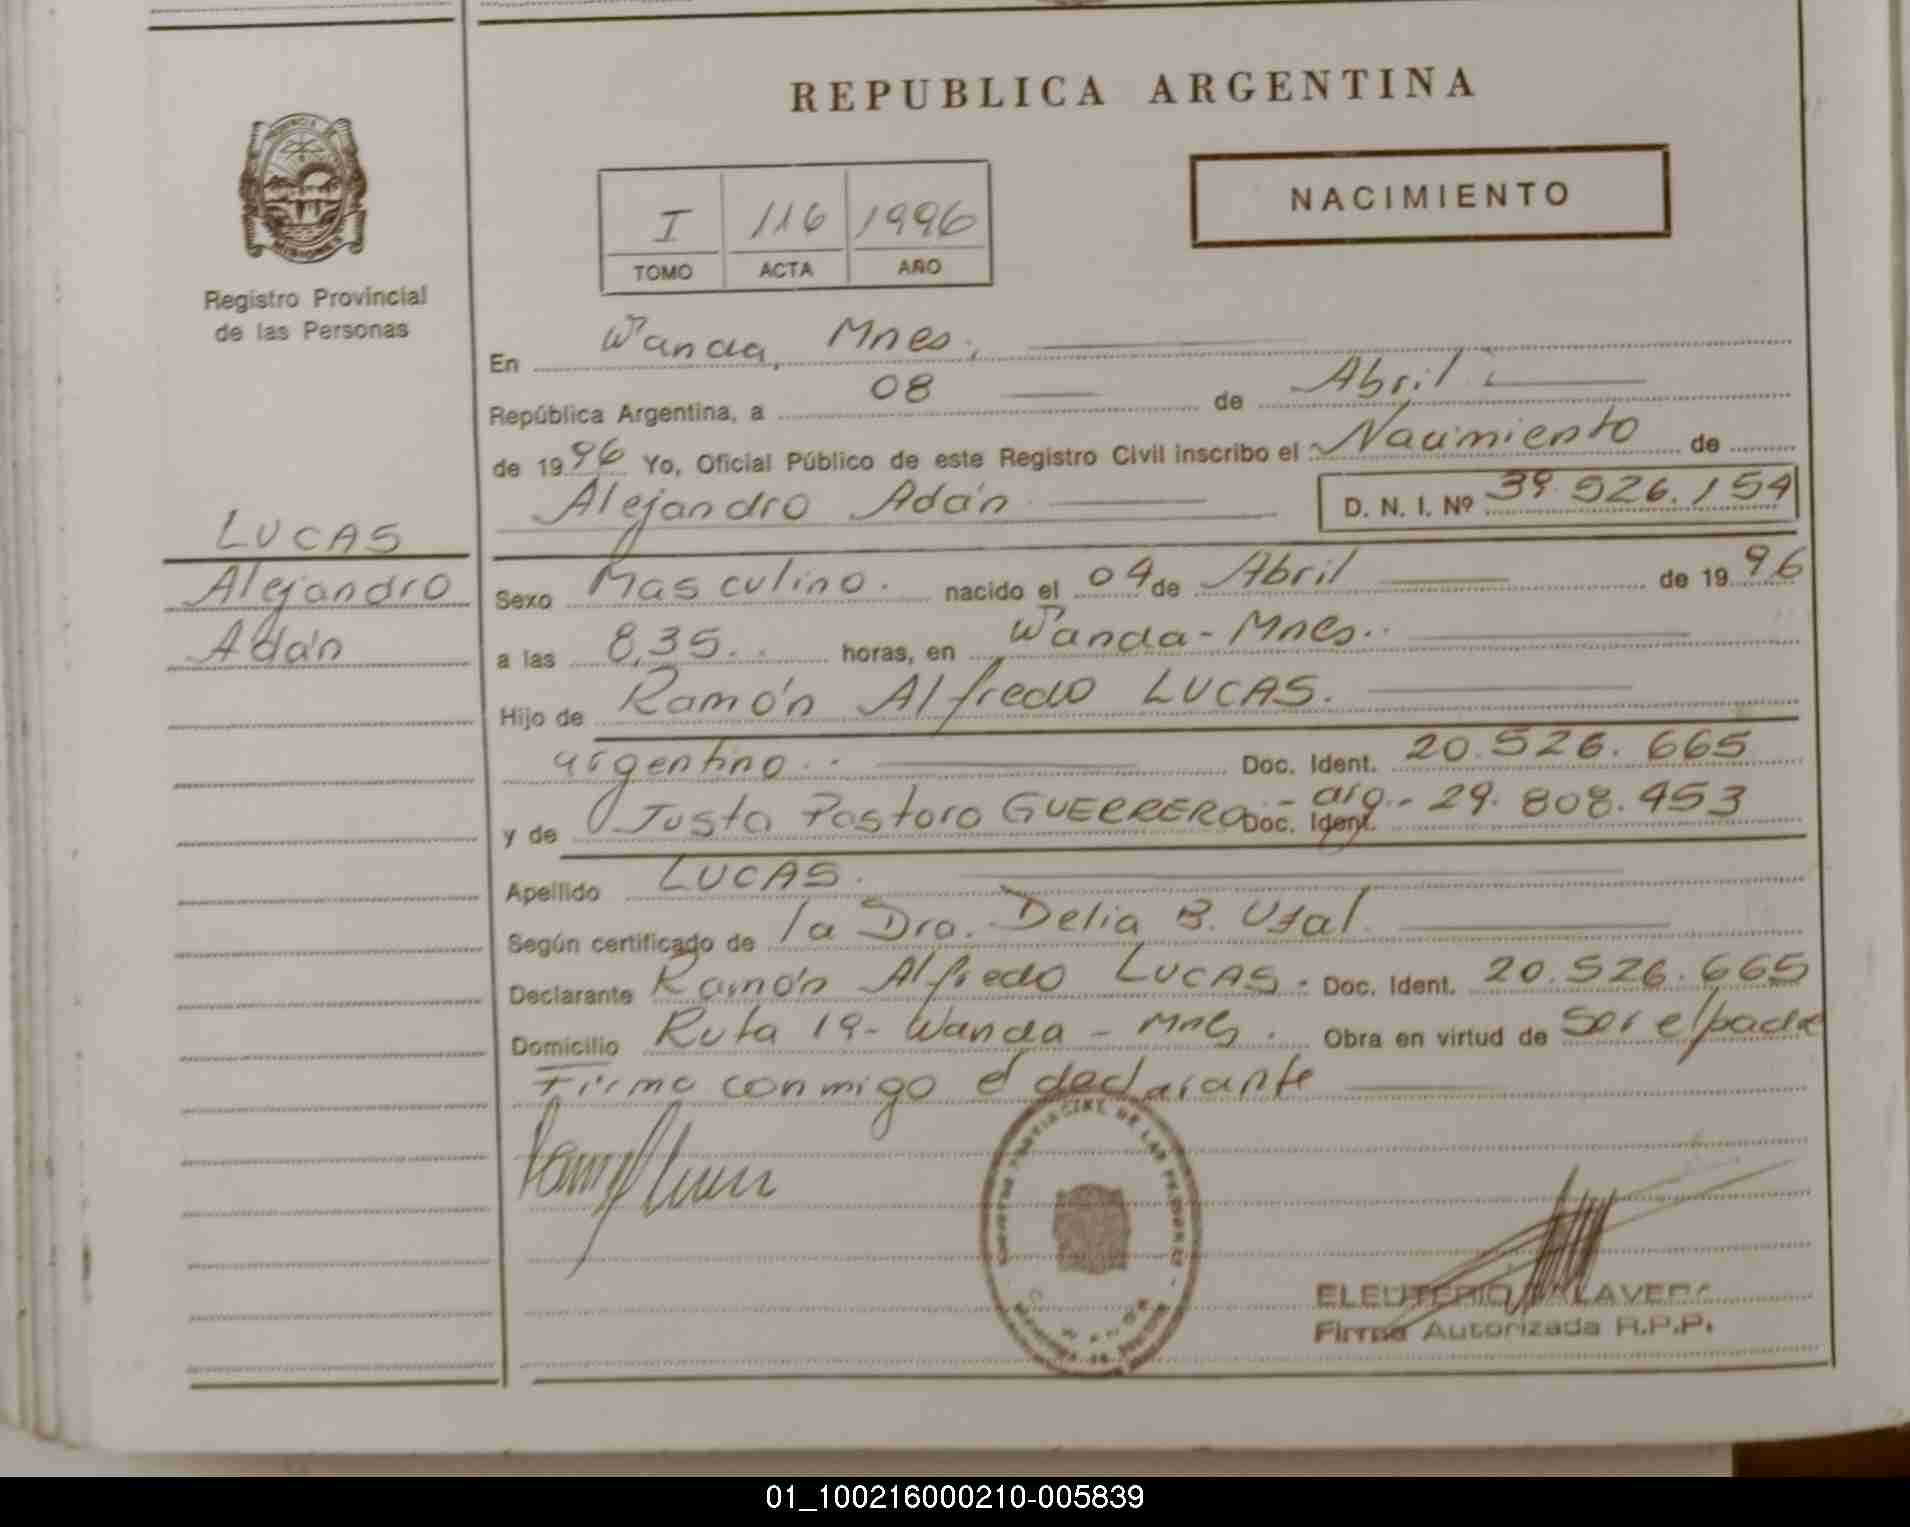 REPUBLICA ARGENTINA
NACIMIENTO
I 116 1996
TOMO ACTA AÑO
PROVINCIA DE
MISIONES
Registro Provincial
de las Personas
En Wanda, Mnes.
República Argentina, a 08 de Abril
de 1996 Yo, Oficial Público de este Registro Civil inscribo el Nacimiento de
Alejandro Adán D. N. I. Nº 39.526.154
LUCAS
Alejandro
Adán
Sexo Masculino. nacido el 04 de Abril de 1996
a las 8,35. horas, en Wanda - Mnes.
Hijo de Ramón Alfredo LUCAS.
argentino. Doc. Ident. 20.526.665
y de Justa Pastora GUERRERO - arg. - Doc. Ident. 29.808.453
Apellido LUCAS.
Según certificado de la Dra. Delia B. 
Declarante Ramón Alfredo LUCAS - Doc. Ident. 20.526.665
Domicilio Ruta 19 - Wanda - Mnes. Obra en virtud de ser el padre
Firma conmigo el declarante
REGISTRO PROVINCIAL DE LAS PERSONAS
WANDA
MISIONES
ELEUTERIO TALAVERA
Firma Autorizada R.P.P.
01_100216000210-005839